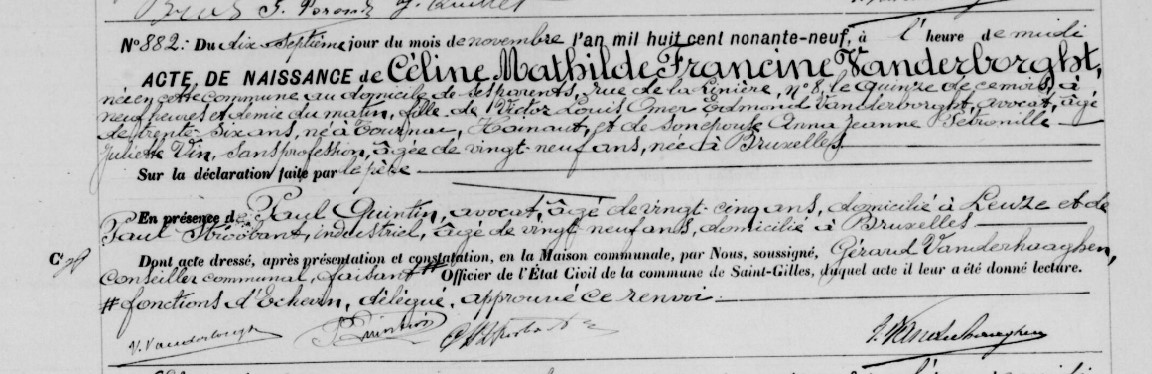 N° 882. Du dix-septième jour du mois de novembre l'an mil huit cent nonante-neuf, à l'heure de midi
ACTE DE NAISSANCE de Céline Mathilde Francine Vanderborght,
née en cette commune au domicile de ses parents, rue de la Linière, n° 8, le quinze de ce mois, à
neuf heures et demie du matin, fille de Victor Louis Omer Edmond Vanderborght, avocat, âgé
de trente-six ans, né à Tournai, Hainaut, et de son épouse Anna Jeanne Pétronille
Juliette Vin, sans profession, âgée de vingt-neuf ans, née à Bruxelles
Sur la déclaration faite par le père
En présence de Paul Quintin, avocat, âgé de vingt-cinq ans, domicilié à Leuze et de
Paul Stroobant, industriel, âgé de vingt neuf ans, domicilié à Bruxelles
Dont acte dressé, après présentation et constatation, en la Maison communale, par Nous, soussigné, Gérard Vanderhaaghen,
Conseiller communal, faisant # Officier de l'État Civil de la commune de Saint-Gilles, duquel acte il leur a été donné lecture.
# fonctions d'Echevin, délégué, approuvé ce renvoi.
V. Vanderborght P. Quintin